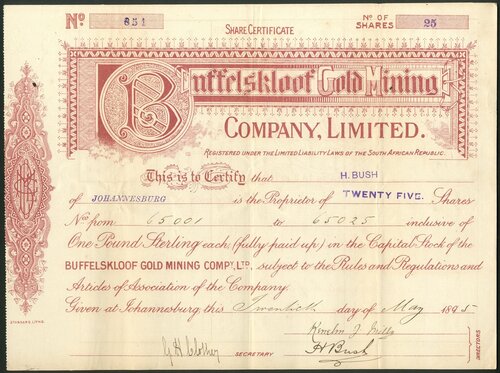 No 651 No OF SHARES 25
SHARE CERTIFICATE
Buffelskloof Gold Mining
COMPANY, LIMITED.
REGISTERED UNDER THE LIMITED LIABILITY LAWS OF THE SOUTH AFRICAN REPUBLIC.
This is to Certify that H. BUSH
of JOHANNESBURG is the Proprietor of TWENTY FIVE. Shares
Nos from 65001 to 65025 inclusive of
One Pound Sterling each (fully paid up) in the Capital Stock of the
BUFFELSKLOOF GOLD MINING COMPY, LTD, subject to the Rules and Regulations and
Articles of Association of the Company.
Given at Johannesburg this Twentieth day of May 1895
STANDARD, LITHO.
SECRETARY
H Bush
DIRECTORS